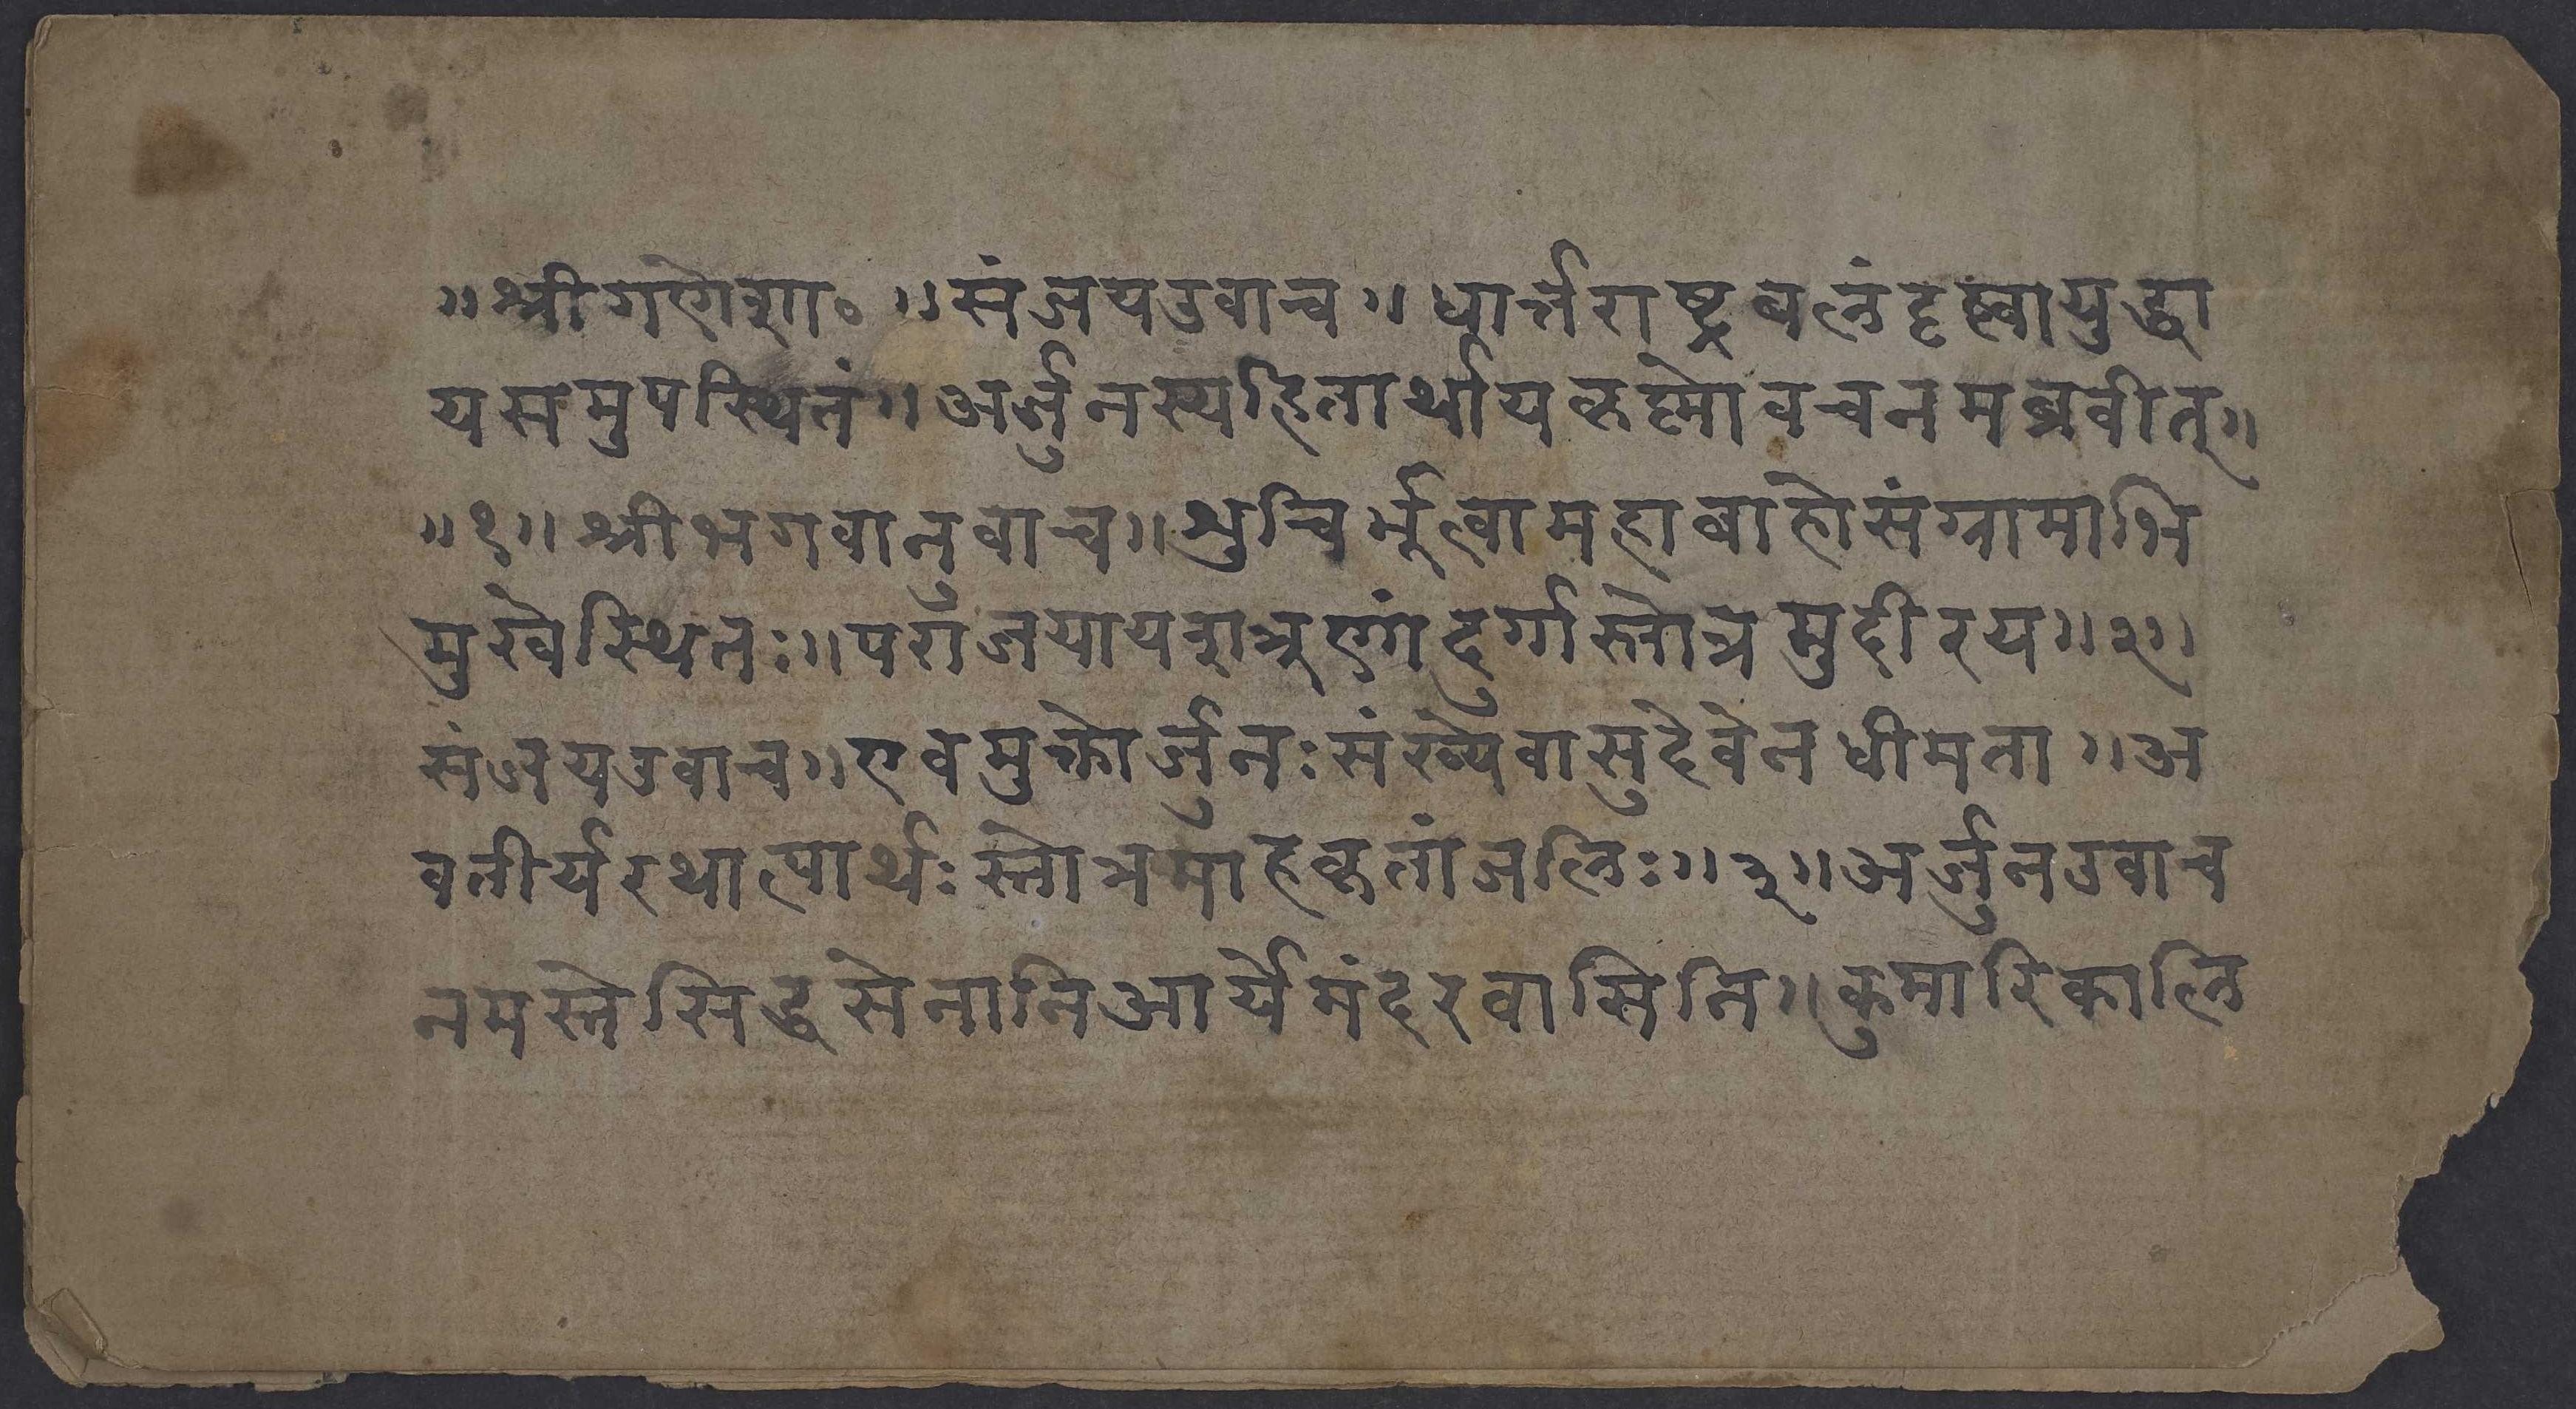 ॥श्रीगणेशा॰॥संजयउवाच॥धार्त्तराष्ट्रबलंदृष्ट्वायुद्धा
यसमुपस्थितं॥अर्जुनस्यहितार्थायकृष्णोवचनमब्रवीत्॥
॥१॥श्रीभगवानुवाच॥शुचिर्भूत्वामहाबाहोसंग्रामाभि
मुखेस्थितः॥पराजयायशत्रूणांदुर्गास्तोत्रमुदीरय॥२॥
संजयउवाच॥एवमुक्तोर्जुनःसंख्येवासुदेवेनधीमता॥अ
वतीर्यरथात्पार्थःस्तोत्रमाहकृतांजलिः॥३॥अर्जुनउवाच
नमस्तेसिद्धसेनानिआर्येमंदरवासिनि॥कुमारिकालि